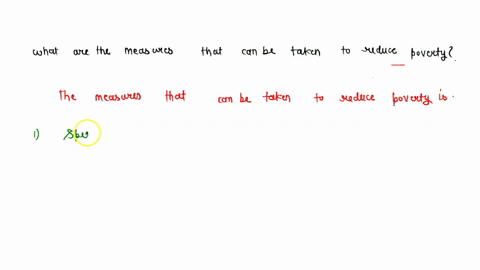 what are the measures that can be taken to reduce poverty?
The measures that can be taken to reduce poverty is.
1) Spe